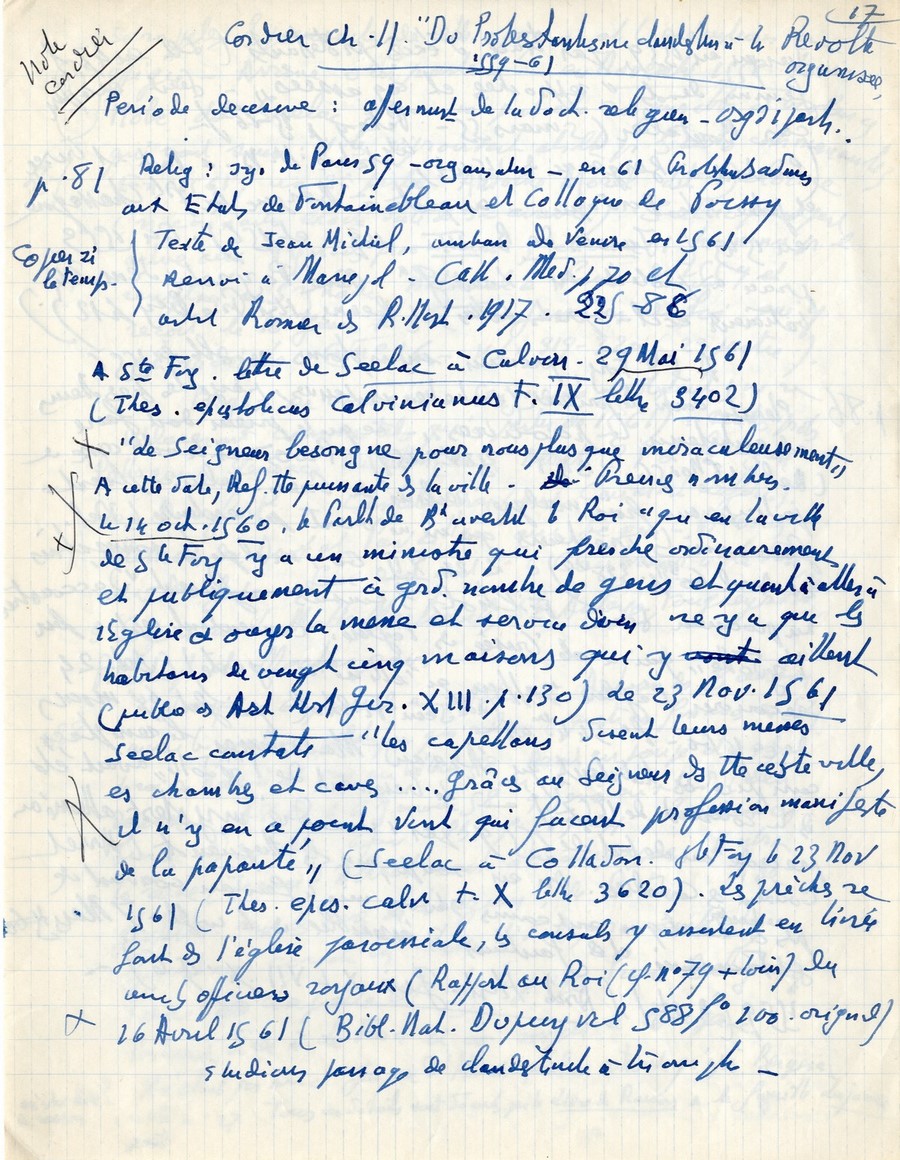 17
Note
Cordier
Cordier ch. II "Du Protestantisme clandestin à la Révolte
organisée,
1559-61
Période décisive : affermist de la doct. religieu - org
p. 81 Relig : sy. de Paris 59 - organisation - en 61 Protestants admis
aux Etats de Fontainebleau et Colloque de Poissy
Copier si
le temps.
Texte de Jean Michiel, amban de Venise en 1561
Renvoi à Marejol - Cath. Med. p 70 et
articl Romier ds R. Hist. 1917. 225-86
A Ste Foy. lettre de Seelac à Calvin - 29 Mai 1561
(Thes. epistolicus Calvinianus T. IX lettre 3402)
X "de Seigneur besongne pour nous plus que miraculeusement"
A cette date, Ref. tte puissante ds la ville - Preuves nombrs.
le 14 oct. 1560, le Parlt de Bx avertit le Roi "que en la ville
de Ste Foy y a un ministre qui presche ordinairement
et publiquement à grd. nombre de gens et quant à aller à
l'Eglise et ouyr la messe et service divin ne y a que les
habitans de vingt cinq maisons qui y vont aillent
(publié ds Arch Hist Gir. XIII. p. 130) Le 23 Nov. 1561
Seelac constate "les capellans disent leurs messes
es chambres et caves .... Grâces au Seigneur ds tte ceste ville,
il n'y en a point vint qui facent profession manifeste
de la papauté" (Seelac à Colladon. Ste Foy le 23 Nov
1561 (Thes. epis. calv. t. X lettre 3620). Les prêches se
font ds l'église paroissiale, les consuls y assistent en livrée
avec les officiers royaux (Rapport au Roi (cf. n° 79 + loin) du
X 26 Avril 1561 (Bibl. Nat. Dupuy vol 588 f° 100. original)
Etudions passage de clandestinité à triomphe -